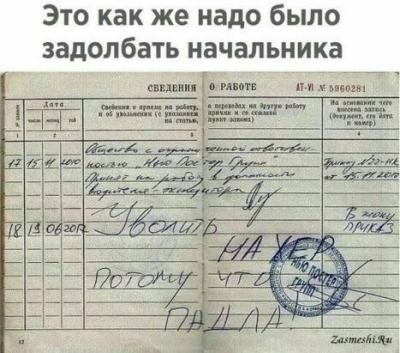 Это как же надо было
задолбать начальника
СВЕДЕНИЯ О РАБОТЕ АТ-VI № 5960281
№ записи
Дата
число месяц год
Сведения о приеме на работу, о переводах на другую работу
и об увольнении (с указанием причин и со ссылкой
на статью, пункт закона)
На основании чего
внесена запись
(документ, его дата
и номер)
1 2 3 4
Общество с ограниченной ответствен-
17 15 11 2010 ностью „Нью Постер Групп" Приказ № 20-НК
Принят на работу в должности от 15.11.2010
водителя-экспедитора
18 19 06 2012 Уволить В жопу
ПРИКАЗ
НА ХЕР
ПОТОМУ ЧТО
ПАДЛА.
НЬЮ ПОСТЕР
ГРУПП
12
Zasmeshi.Ru